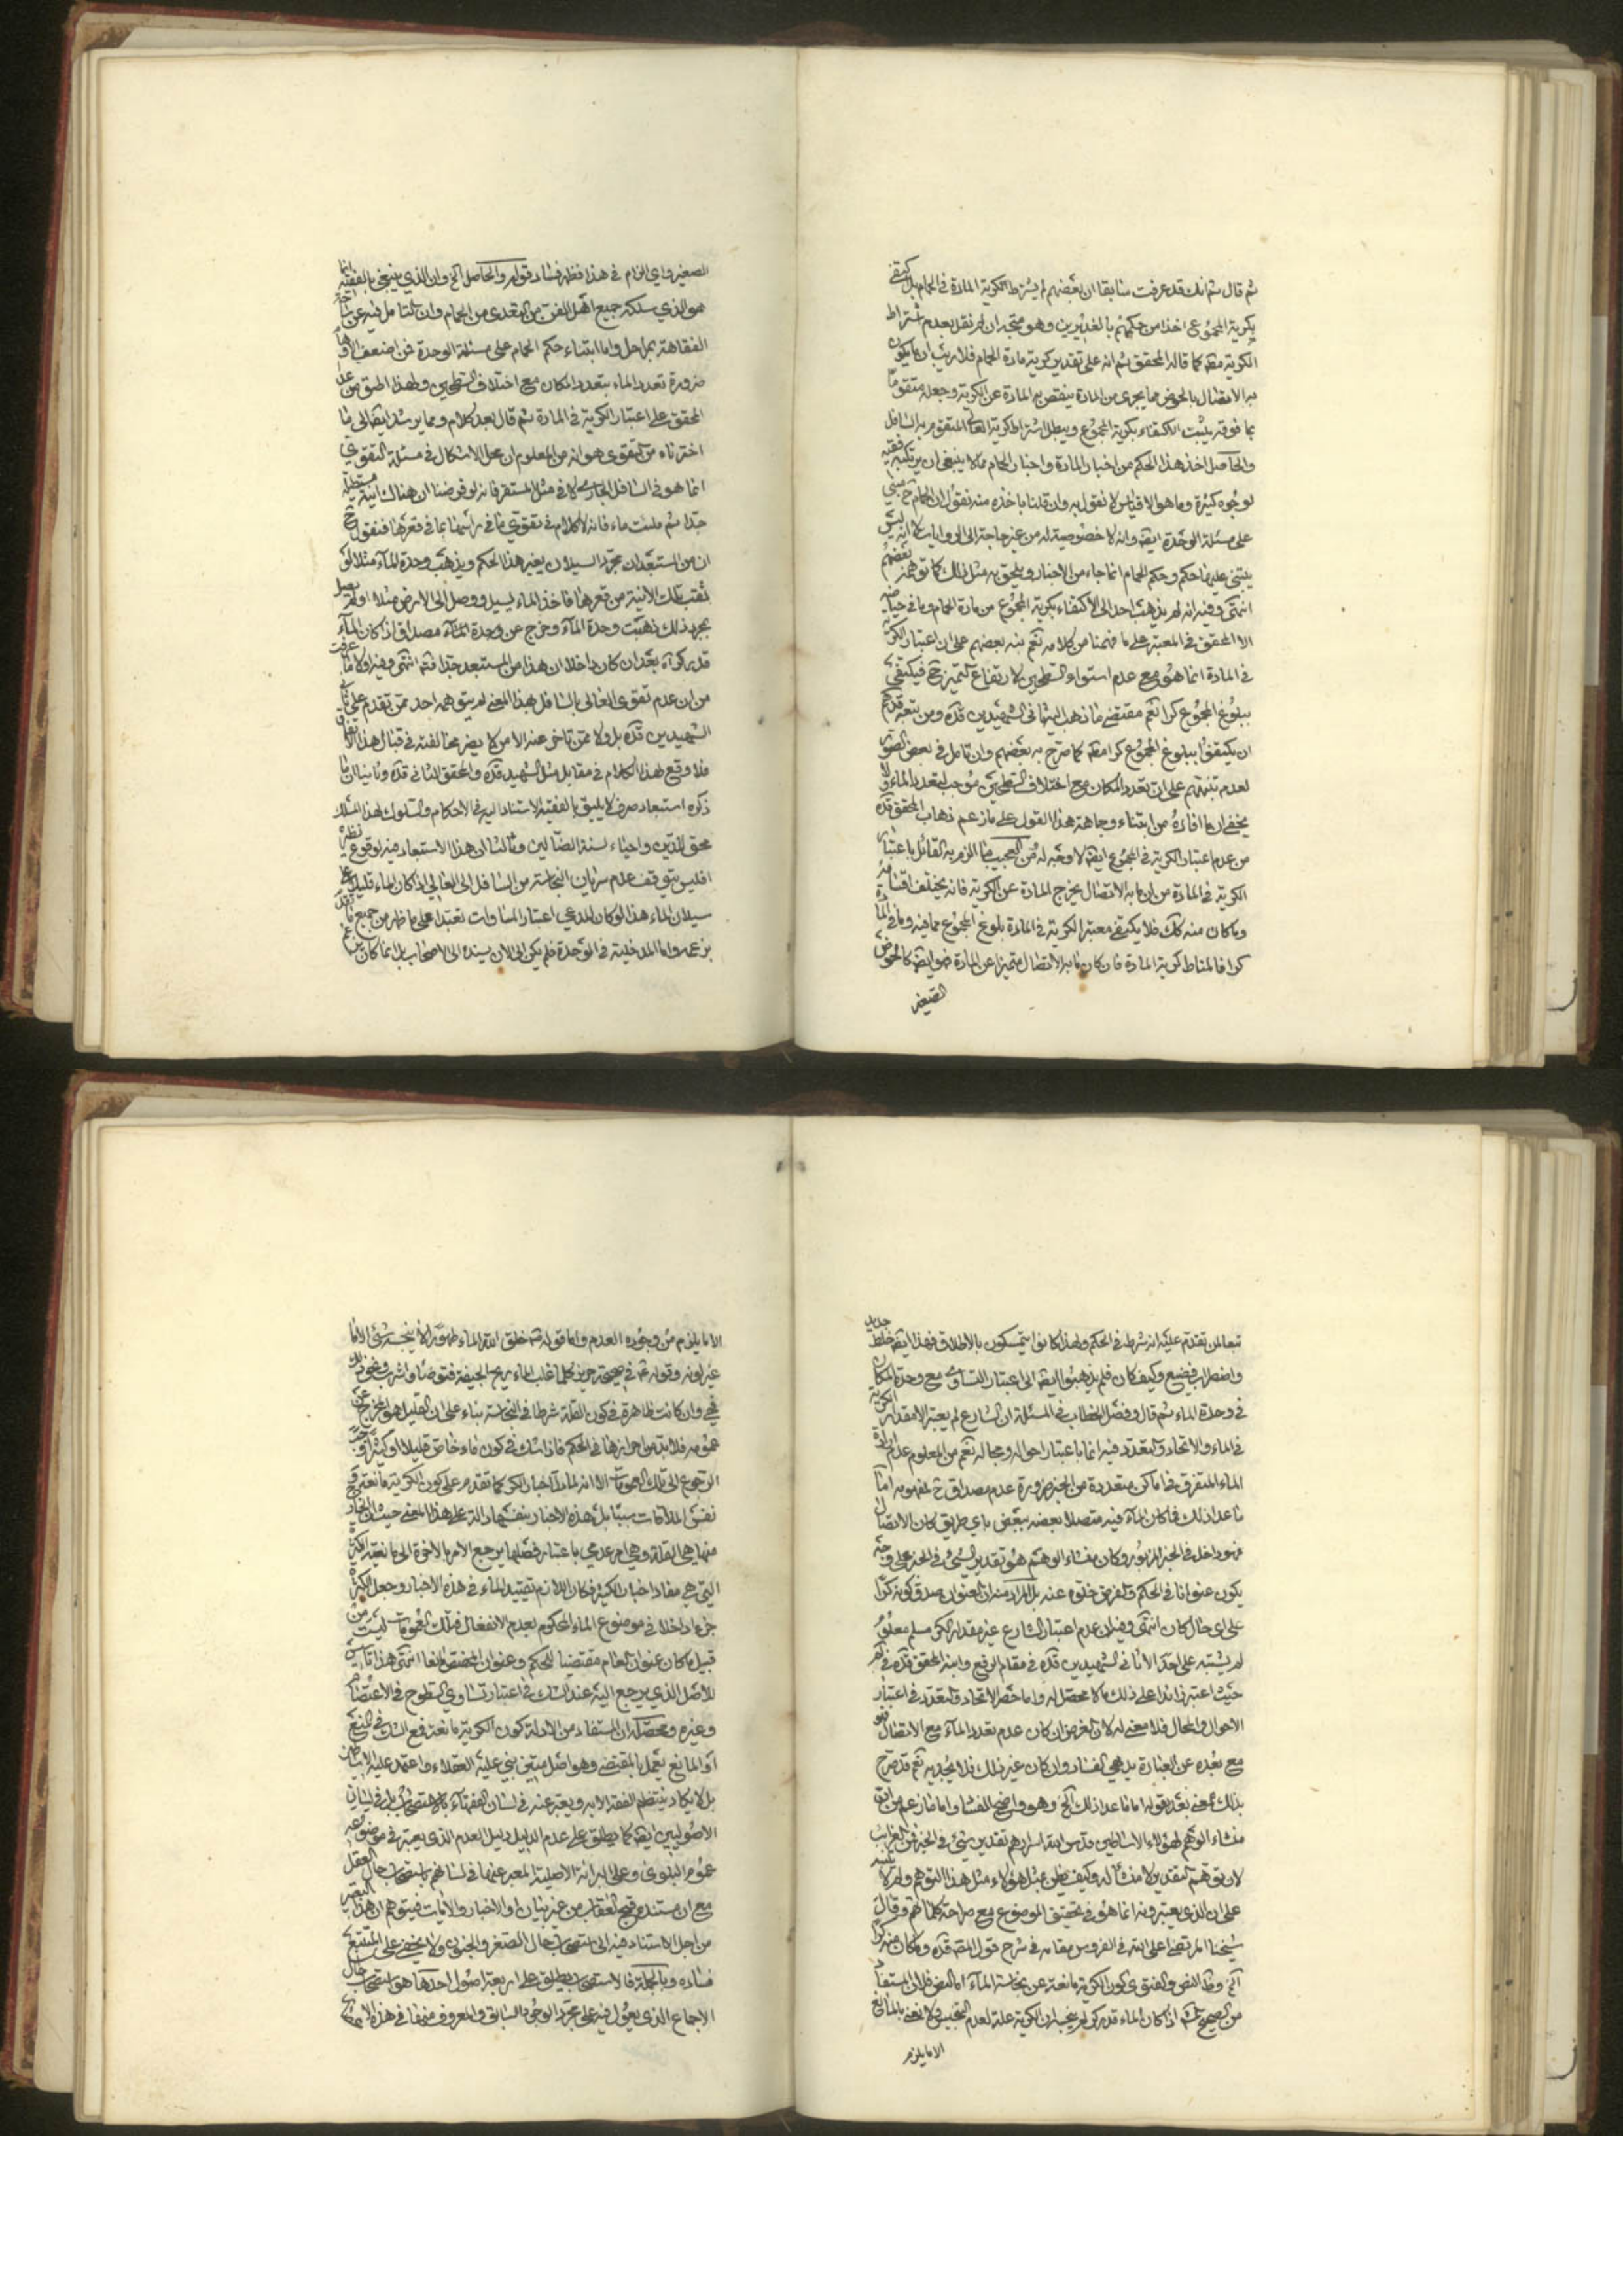 ثم قال ثم انك قد عرفت سابقا ان بعضهم لم يشترط الكرية المادة في الحمام بل يكتفي
بكرية المجموع اخذا من حكمهم بالغديرين وهو متجه ان لم نقل بعدم اشتراط
الكرية مطلقا كما قاله المحقق ثم انه على تقدير كرية مادة الحمام فلا ريب ان ما يكون
به الاتصال بالحوض مما يجري من المادة ينقص به المادة عن الكرية وجعله متقوما
بما فوقه يثبت الاكتفاء بكرية المجموع ويبطل اشتراط كرية العالي المتقوم به السافل
والحاصل اخذ هذا الحكم من اخبار المادة واخبار الحمام مما لا ينبغي ان يرتكبه فقيه
لوجوه كثيرة وما هو الا قياس لا نقول به وان قلنا باخذه منه نقول ان الحمام ح مبني
على مسئلة الوحدة ايضه وانه لا خصوصية له من غير حاجة الى الروايات لا انه ليس
يبتني عليها حكم وحكم الحمام انما جاء من الاخبار ويلحق به مثل ذلك كما توهمه بعضهم
انتهى وفيه انه لم يذهب احد الى الاكتفاء بكرية المجموع من مادة الحمام وما في حياضه
الا المحقق في المعتبر على ما فهمنا من كلامه نعم نبه بعضهم على ان اعتبار الكرية
في المادة انما هو مع عدم استواء السطحين لارتفاع التميز ح فيكتفى
ببلوغ المجموع كرا نعم مقتضى ما ذهب اليه ثاني الشهيدين قده ومن تبعه قدهم
ان يكتفوا ببلوغ المجموع كرا مطه كما صرح به بعضهم وان تامل في بعض الصور
لعدم تنبههم على ان تعدد المكان مع اختلاف السطحين موجب لتعدد الماء ولا
يخفى ان ما افاده من ابتناء وجاهة هذا القول على ما زعم ذهاب المحقق قده
من عدم اعتبار الكرية في المجموع ايضه لا وجه له ومن العجيب ما الزم به القائل باعتبار
الكرية في المادة من ان ما به الاتصال يخرج المادة عن الكرية فانه يختلف اقسامه
وما كان منه كك فلا يكتفي معتبر الكرية في المادة بلوغ المجموع مما فيه وما في المادة
كرا فالمناط كرية المادة فان كان ما به الاتصال متميزا عن المادة فهو ايضه كالحوض
الصغير
الصغير واي الزام في هذا فظهر فساد قوله والحاصل الخ وان الذي ينبغي بالفقيه انما
هو الذي سلكه جميع اهل الفن من التعدي من الحمام وان التامل فيه عن ساحة
الفقاهة بمراحل واما ابتناء حكم الحمام على مسئلة الوحدة فمن اضعف الاوهام
ضرورة تعدد الماء بتعدد المكان مع اختلاف السطحين ولهذا اطبق من عدا
المحقق على اعتبار الكرية في المادة ثم قال بعد كلام ومما يرشد ايضه الى ما
اخترناه من التقوي هو انه من المعلوم ان محل الاشكال في مسئلة التقوي
انما هو في السافل الجاري لا في مثل المستقر فانه لو فرضنا ان هناك انية مستطيلة
جدا ثم ملئت ماء فانه لا كلام في تقوي ما في راسها بما في قعرها فنقول ح
ان من المستبعد ان مجرد السيلان يغير هذا الحكم ويذهب وحدة الماء مثلا لو
ثقب تلك الانية من قعرها فاخذ الماء يسيل ووصل الى الارض مثلا او لم يصل
بمجرد ذلك ذهبت وحدة الماء وخرج عن وحدة الماء مصداق اذا كان الماء
قدر كر اه بعد ان كان داخلا ان هذا من المستبعد جدا فتم انتهى وفيه اولا ما عرفت
من ان عدم تقوي العالي بالسافل بهذا المعنى لم يتوهمه احد ممن تقدم على ثاني
الشهيدين قده بل ولا ممن تاخر عنه الا من لا يضر مخالفته في قبال هذا الاتفاق
فلا وقع لهذا الكلام في مقابل مثل الشهيد قده والمحقق الثاني قده وثانيا ان ما
ذكره استبعاد صرف لا يليق بالفقيه الاستناد اليه في الاحكام والسلوك لهذا المسلك
محق للدين واحياء لسنة الضالين وثالثا ان هذا الاستبعاد فيه لوقوع نظيره
افليس يتوقف عدم سريان النجاسة من السافل الى العالي اذا كان الماء قليلا على
سيلان الماء هذا لو كان المدعي اعتبار المساوات تعبدا على ما ظهر من جميع ما تقدم
بزعمه واما المدخلية في الوحدة فلم يكن الى الان يسنده الى الاصحاب بل انما كان
تبعا لمن تقدم عليه انه شرط في الحكم ولهذا كانوا يتمسكون بالاطلاق فهذا ايضه خلط جديد
واضطراب فضيع وكيف كان فلم يذهبوا ايضه الى اعتبار التساوي مع وحدة المكان
في وحدة الماء ثم قال وفصل الخطاب في المسئلة ان الشارع لم يعتبر الا مقدار الكرية
في الماء والاتحاد والتعدد فيه انما باعتبار احواله ومحاله نعم من المعلوم عدم ارادة
الماء المتفرق في اماكن متعددة من الخبر ضرورة عدم مصداق ح لمفهومه اما
ما عدا ذلك فما كان الماء فيه متصلا بعضه ببعض باي طريق كان الاتصال
فهو داخل في الخبر المزبور وكان منشاء الوهم هو تقدير الشيء في الخبر على وجه
يكون عنوانا في الحكم والفرض خلوه عنه بل المراد منه ان العنوان صدق كونه كرا
على اي حال كان انتهى وفيه ان عدم اعتبار الشارع غير مقدار الكر مسلم معلوم
لم يشتبه على احد الا ثاني الشهيدين قده في مقام الرفع وابنه المحقق قده في
حيث اعتبر زائدا على ذلك ما لا محصل له واما حصر الاتحاد والتعدد في اعتبار
الاحوال والمحال فلا معنى له لان الغرض ان كان عدم تعدد الماء مع الاتصال فهو
مع بعده عن العبارة بديهي الفساد وان كان غير ذلك فلا يجديه نعم قد صرح
بذلك المعنى بعد بقوله اما ما عدا ذلك الخ وهو واضح الفساد واما ما زعم من ان
منشاء الوهم لهؤلاء الاساطين قدس الله اسرارهم تقدير شيء في الخبر فمن الغرائب
لان توهم التقدير لا منشأ له وكيف يظن بمثل هؤلاء مثل هذا التوهم ولم لا
على ان الذي يعتبرونه انما هو في تحقيق الموضوع مع صراحة كلماتهم وقال
شيخنا المرتضى اعلى الله في الفردوس مقامه في شرح قول المصه قده وما كان منه كرا
الخ وظ النص والفتوى كون الكرية مانعة عن نجاسة الماء اما النص فلان المستفاد
من الصحيح المشتهر اذا كان الماء قدر كر لم ينجسه ان الكرية علة لعدم التنجيس ولا نعني بالمانع
الا ما يلزم
الا ما يلزم من وجوده العدم واما قوله ص خلق الله الماء طهورا لا ينجسه شيء الا ما
غير لونه وقوله ع في صحيحة حريز كلما غلب الماء ريح الجيفة فتوضأ واشرب ونحو ذلك
فهي وان كانت ظاهرة في كون القلة شرطا في النجاسة بناء على ان القليل هو المخرج عن
عمومه فلا بد من احرازها في الحكم فاذا شك في كون ماء خاص قليلا او كثيرا وجب
الرجوع الى تلك العمومات الا انه لما دل اخبار الكر كما تقدم على كون الكرية مانعة وقع
نفس الملاقات سببا بل هذه الاخبار بنفسها دالة على هذا المعنى حيث ان الخارج
منها هي القلة وهي امر عدمي باعتبار فصلها يرجع الامر بالاخرة الى مانعية الكثرة
التي هي مفاد اخبار الكر فكان اللازم تقييد الماء في هذه الاخبار وجعل الكثرة
جزءا داخلا في موضوع الماء المحكوم بعدم الانفعال فتلك العمومات ليست من
قبيل ما كان عنوان العام مقتضيا للحكم وعنوان المخصص مانعا انتهى هذا تاسيس
للاصل الذي يرجع اليه عند الشك في اعتبار تساوي السطوح في الاعتصام
وغيره ومحصله ان المستفاد من الادلة كون الكرية مانعة فمع الشك في المنع
او المانع يعمل بالمقتضى وهو اصل متين بنى عليه العقلاء واعتمد عليه الاساطين
بل لا يكاد ينتظم الفقه الا به ويعبر عنه في لسان الفقهاء بالاستصحاب بل وفي لسان
الاصوليين ايضه كما يطلق على عدم الدليل دليل العدم الذي يعتبر في موضوعه
عموم البلوى وعلى البرائة الاصلية المعبر عنها في لسانهم باستصحاب حال العقل
مع ان مستنده قبح العقاب من غير بيان او الاخبار والايات فيتوهم ان هذا التعبير
من اجل الاستناد فيه الى استصحاب حال الصغر والجنون ولا يخفى على المتتبع
فساده وبالجملة فالاستصحاب يطلق على اربعة اصول احدها هو استصحاب حال
الاجماع الذي يعول فيه على مجرد الوجود السابق والمعروف منها في هذه الاعصار